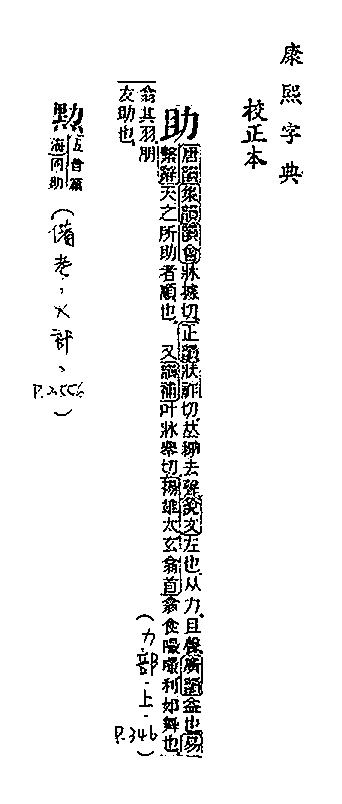 康熙字典
校正本
助
唐韻集韻韻會牀據切正韻狀詐切𠀤鋤去聲說文左也从力且聲廣韻益也易
繫辭天之所助者順也 又韻補叶牀舉切揚雄太玄翕首翕食嘬嘬利如舞也
翕其羽朋
友助也
(力部-上-
P.346)
五音篇
海同助
(備考,火部、
P.2556)